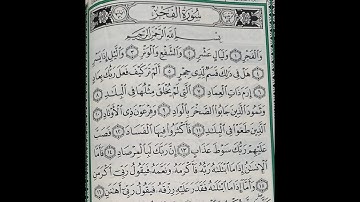 سُورَةُ الفَجْرِ
بِسْمِ اللَّهِ الرَّحْمَٰنِ الرَّحِيمِ
وَالْفَجْرِ ١ وَلَيَالٍ عَشْرٍ ٢ وَالشَّفْعِ وَالْوَتْرِ ٣ وَاللَّيْلِ إِذَا يَسْرِ
٤ هَلْ فِي ذَٰلِكَ قَسَمٌ لِذِي حِجْرٍ ٥ أَلَمْ تَرَ كَيْفَ فَعَلَ رَبُّكَ بِعَادٍ
٦ إِرَمَ ذَاتِ الْعِمَادِ ٧ الَّتِي لَمْ يُخْلَقْ مِثْلُهَا فِي الْبِلَادِ ٨
وَثَمُودَ الَّذِينَ جَابُوا الصَّخْرَ بِالْوَادِ ٩ وَفِرْعَوْنَ ذِي الْأَوْتَادِ ١٠
الَّذِينَ طَغَوْا فِي الْبِلَادِ ١١ فَأَكْثَرُوا فِيهَا الْفَسَادَ ١٢ فَصَبَّ
عَلَيْهِمْ رَبُّكَ سَوْطَ عَذَابٍ ١٣ إِنَّ رَبَّكَ لَبِالْمِرْصَادِ ١٤ فَأَمَّا
الْإِنْسَانُ إِذَا مَا ابْتَلَاهُ رَبُّهُ فَأَكْرَمَهُ وَنَعَّمَهُ فَيَقُولُ رَبِّي أَكْرَمَنِ
١٥ وَأَمَّا إِذَا مَا ابْتَلَاهُ فَقَدَرَ عَلَيْهِ رِزْقَهُ فَيَقُولُ رَبِّي أَهَانَنِ ١٦